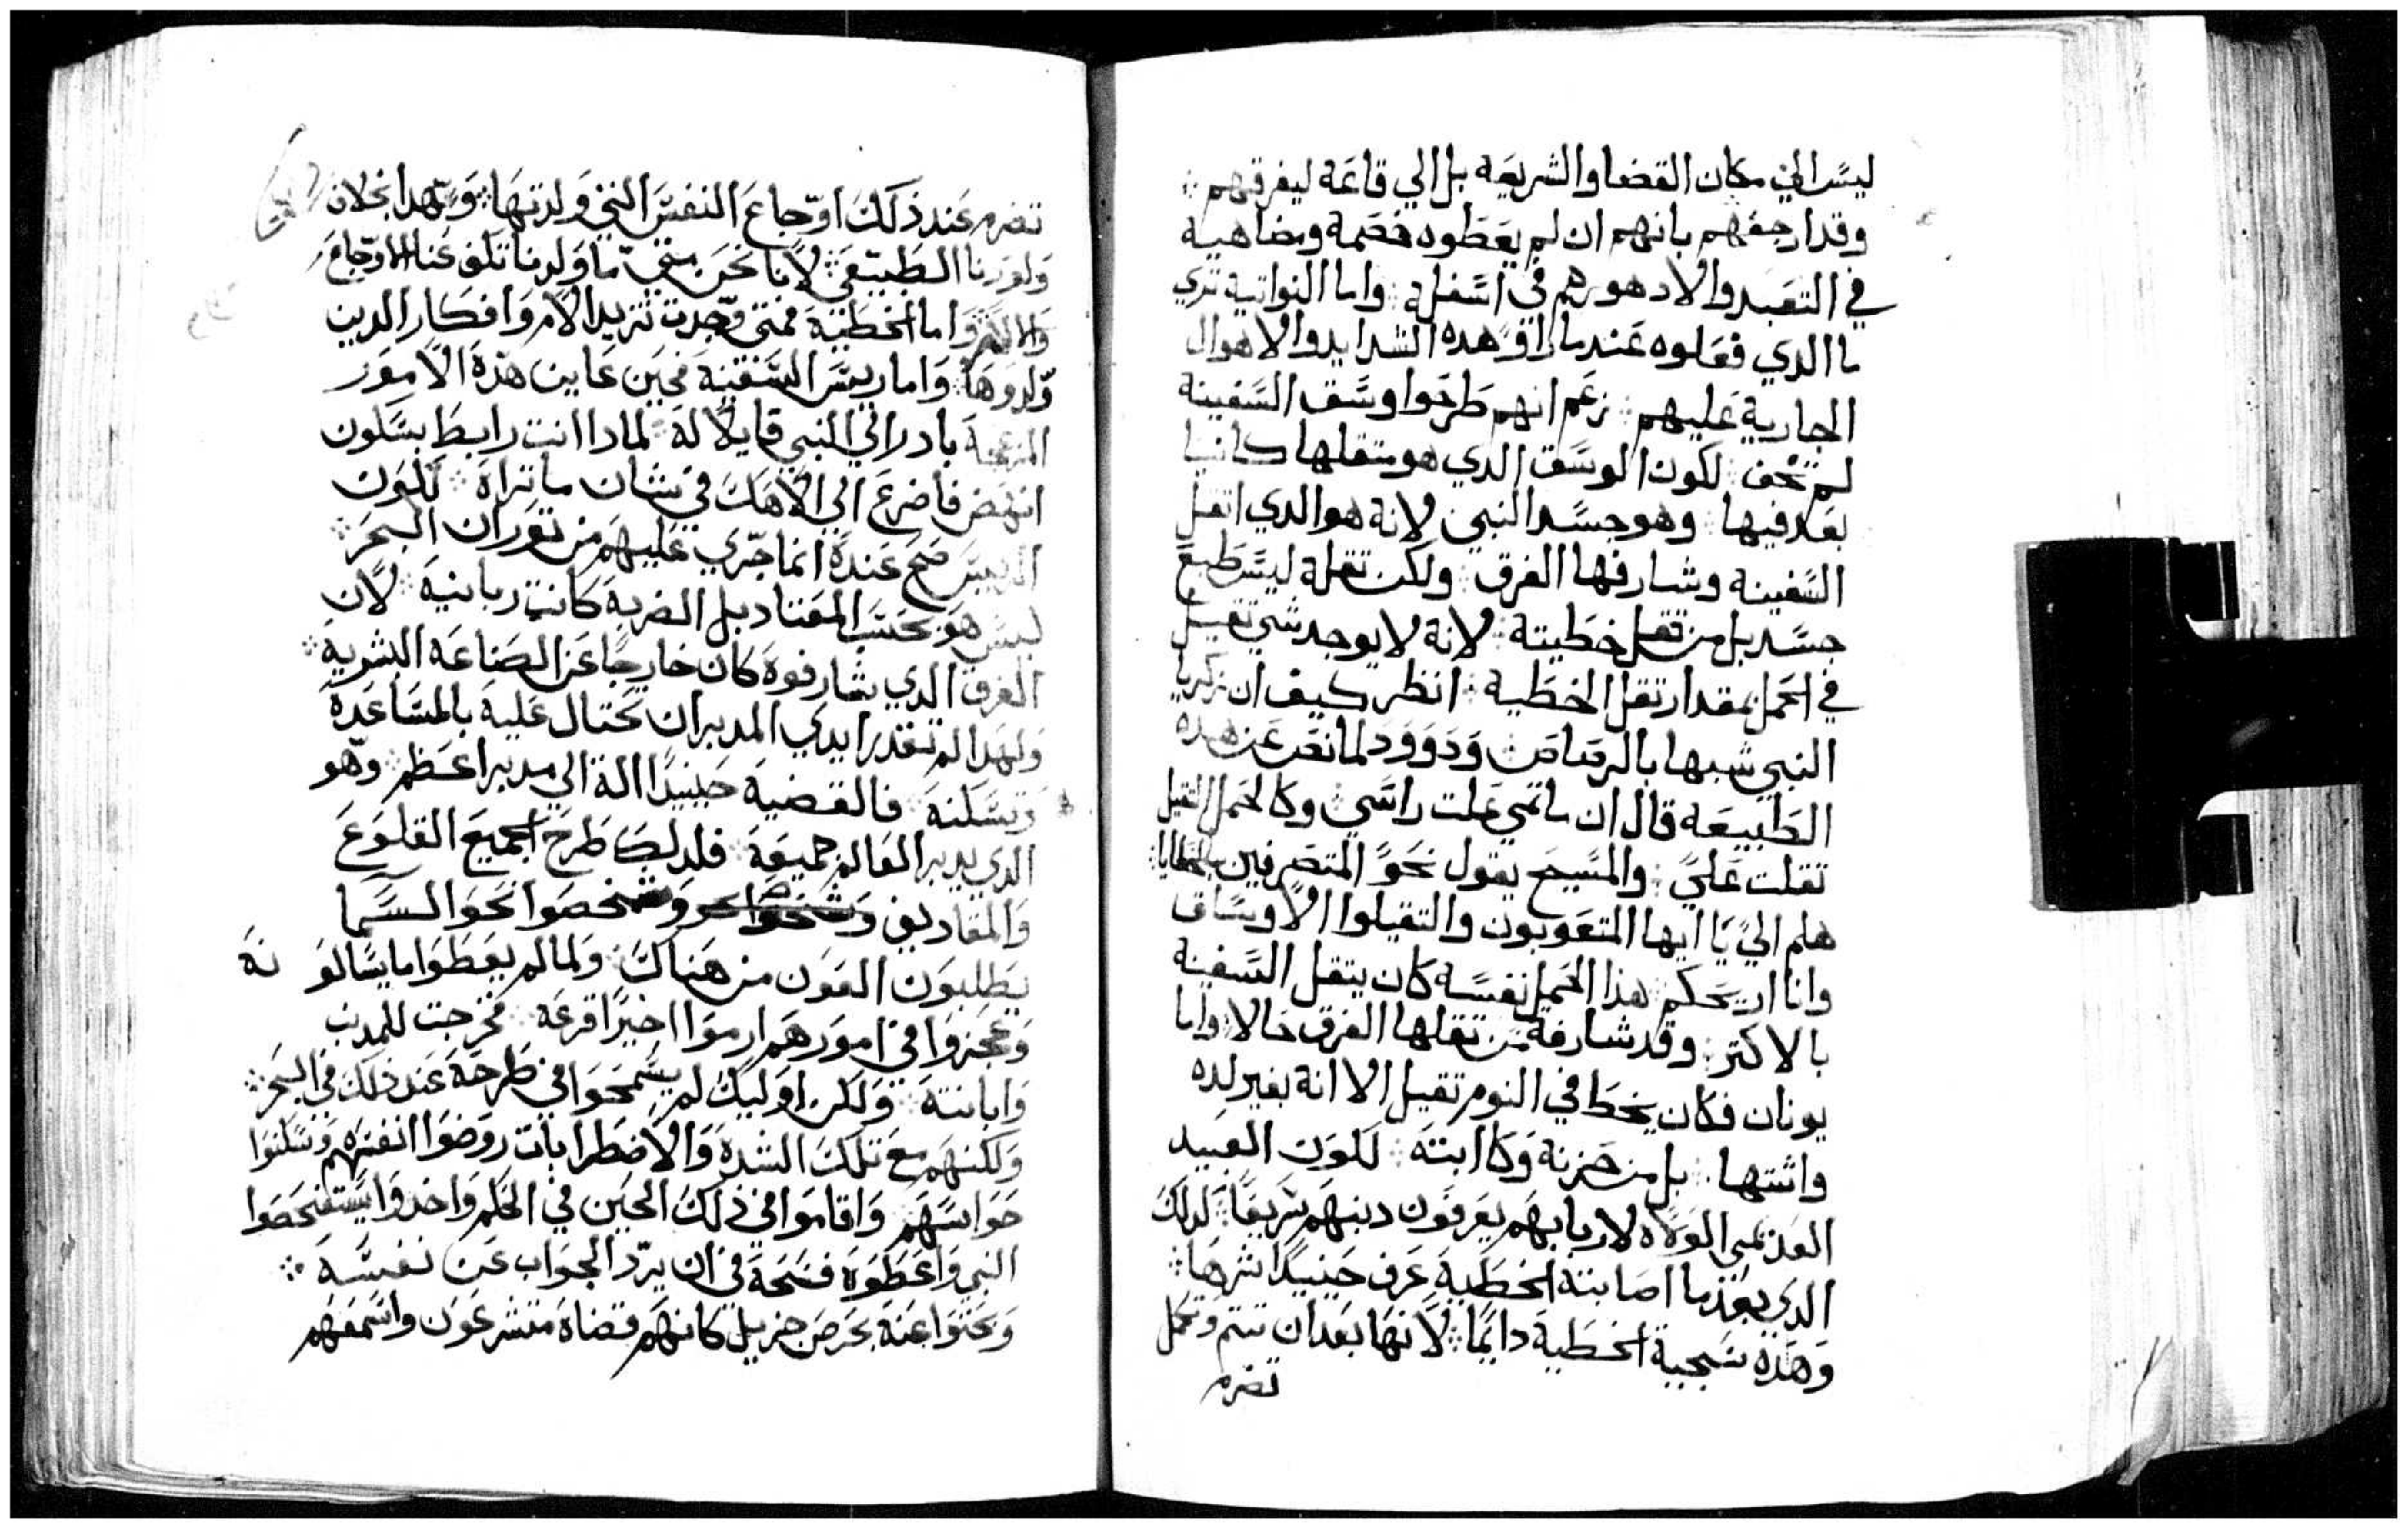 ليس الي مكان القضا والشريعة بل الي قاعة ليغرقهم
وقد ارجفهم بانهم ان لم يعطوه خصمة ويضاهيه
في التعبد والا دهورهم في اسفله واما النواتية تري
ما الدي فعلوه عند ما راو هده الشدايد والاهوال
الجارية عليهم زعم انهم طرحوا وسق السفينة
لم تخف لكون الوسق الدي هو متقلها كاينا
بعد فيها وهو جسد النبي لانه هو الدي اتقل
السفينة وشارفها الغرق ولكن تقله ليس طبع
جسد بل من تقل خطيته لانه لا يوجد شي تقيل
في الحمل بمقدار تقل الخطية انظر كيف ان زكريا
النبي شبهها بالرصاص ودوود لما نعت عن هده
الطبيعة قال ان ماتمي علت راسي وكالحمل التقيل
تقلت علي والمسيح يقول نحو المتصرفين بالخطايا
هلم الي يا ايها المتعوبون والتقيلوا الاوساق
وانا اريحكم هذا الحمل نفسه كان يتقل السفينة
بالاكتر وقد شارفه من تقلها الغرق حالا واما
يونان فكان يخط في النوم تقيل الا انه بغير لده
واشتها بل من حزنة وكاابته لكون العبيد
العديمي الولاه لاربابهم يعرفون دينهم سريعا لدلك
الدي بعدما اصابته الخطية عرف حينيدا شرها
وهده سجية الخطية دايما لانها بعد ان تتم وتكمل
تضرم
تضرم عند ذلك اوجاع النفس التي ولدتها وهدا بخلاف
ولودنا الطبيعي لانا نحن متي ما ولدنا تلف عنا الاوجاع
والالم واما الخطية فمتي وجدت تزيد الام وافكار الدين
ولدوها واما ريس السفينة فحين عاين هذه الامور
المزعجة بادر الي النبي قايلا له لمادا انت رابط بسكون
انهض فاضرع الي الاهك في شان ما تراه لكون
الريس صح عنده انما جري عليهم من تعوران البحر
ليس هو بحسب المعتاد بل الضربة كانت ربانية لان
الغرق الدي شارفوه كان خارجا عن الصناعة البشرية
ولهدا لم تقدر ايدي المدبران تحتال عليه بالمساعدة
وتسكنه فالقضية حينيدا الة الي مدبر اعظم وهو
الدي يدبر العالم جميعه فلدلك طرح الجميع القلوع
والمقاديف وشخصوا نحو السما
يطلبون العون من هناك ولما لم يعطوا ما يسالونه
وعجزوا في امورهم ارموا اخيرا قرعة فخرجت للمدنب
وابانته ولكن اوليك لم يسمحوا في طرحة عند ذلك في البحر
ولكنهم مع تلك الشدة والاضطرابات روضوا انفسهم وسكنوا
حواسهم واقاموا في ذلك الحين في الحكم واخدوا يستفحصوا
النبي واعطوه فسحة في ان يرد الجواب عن نفسه
وبحتوا عنه بحرص جزيل كانهم قضاه متشرعون واسمعهم